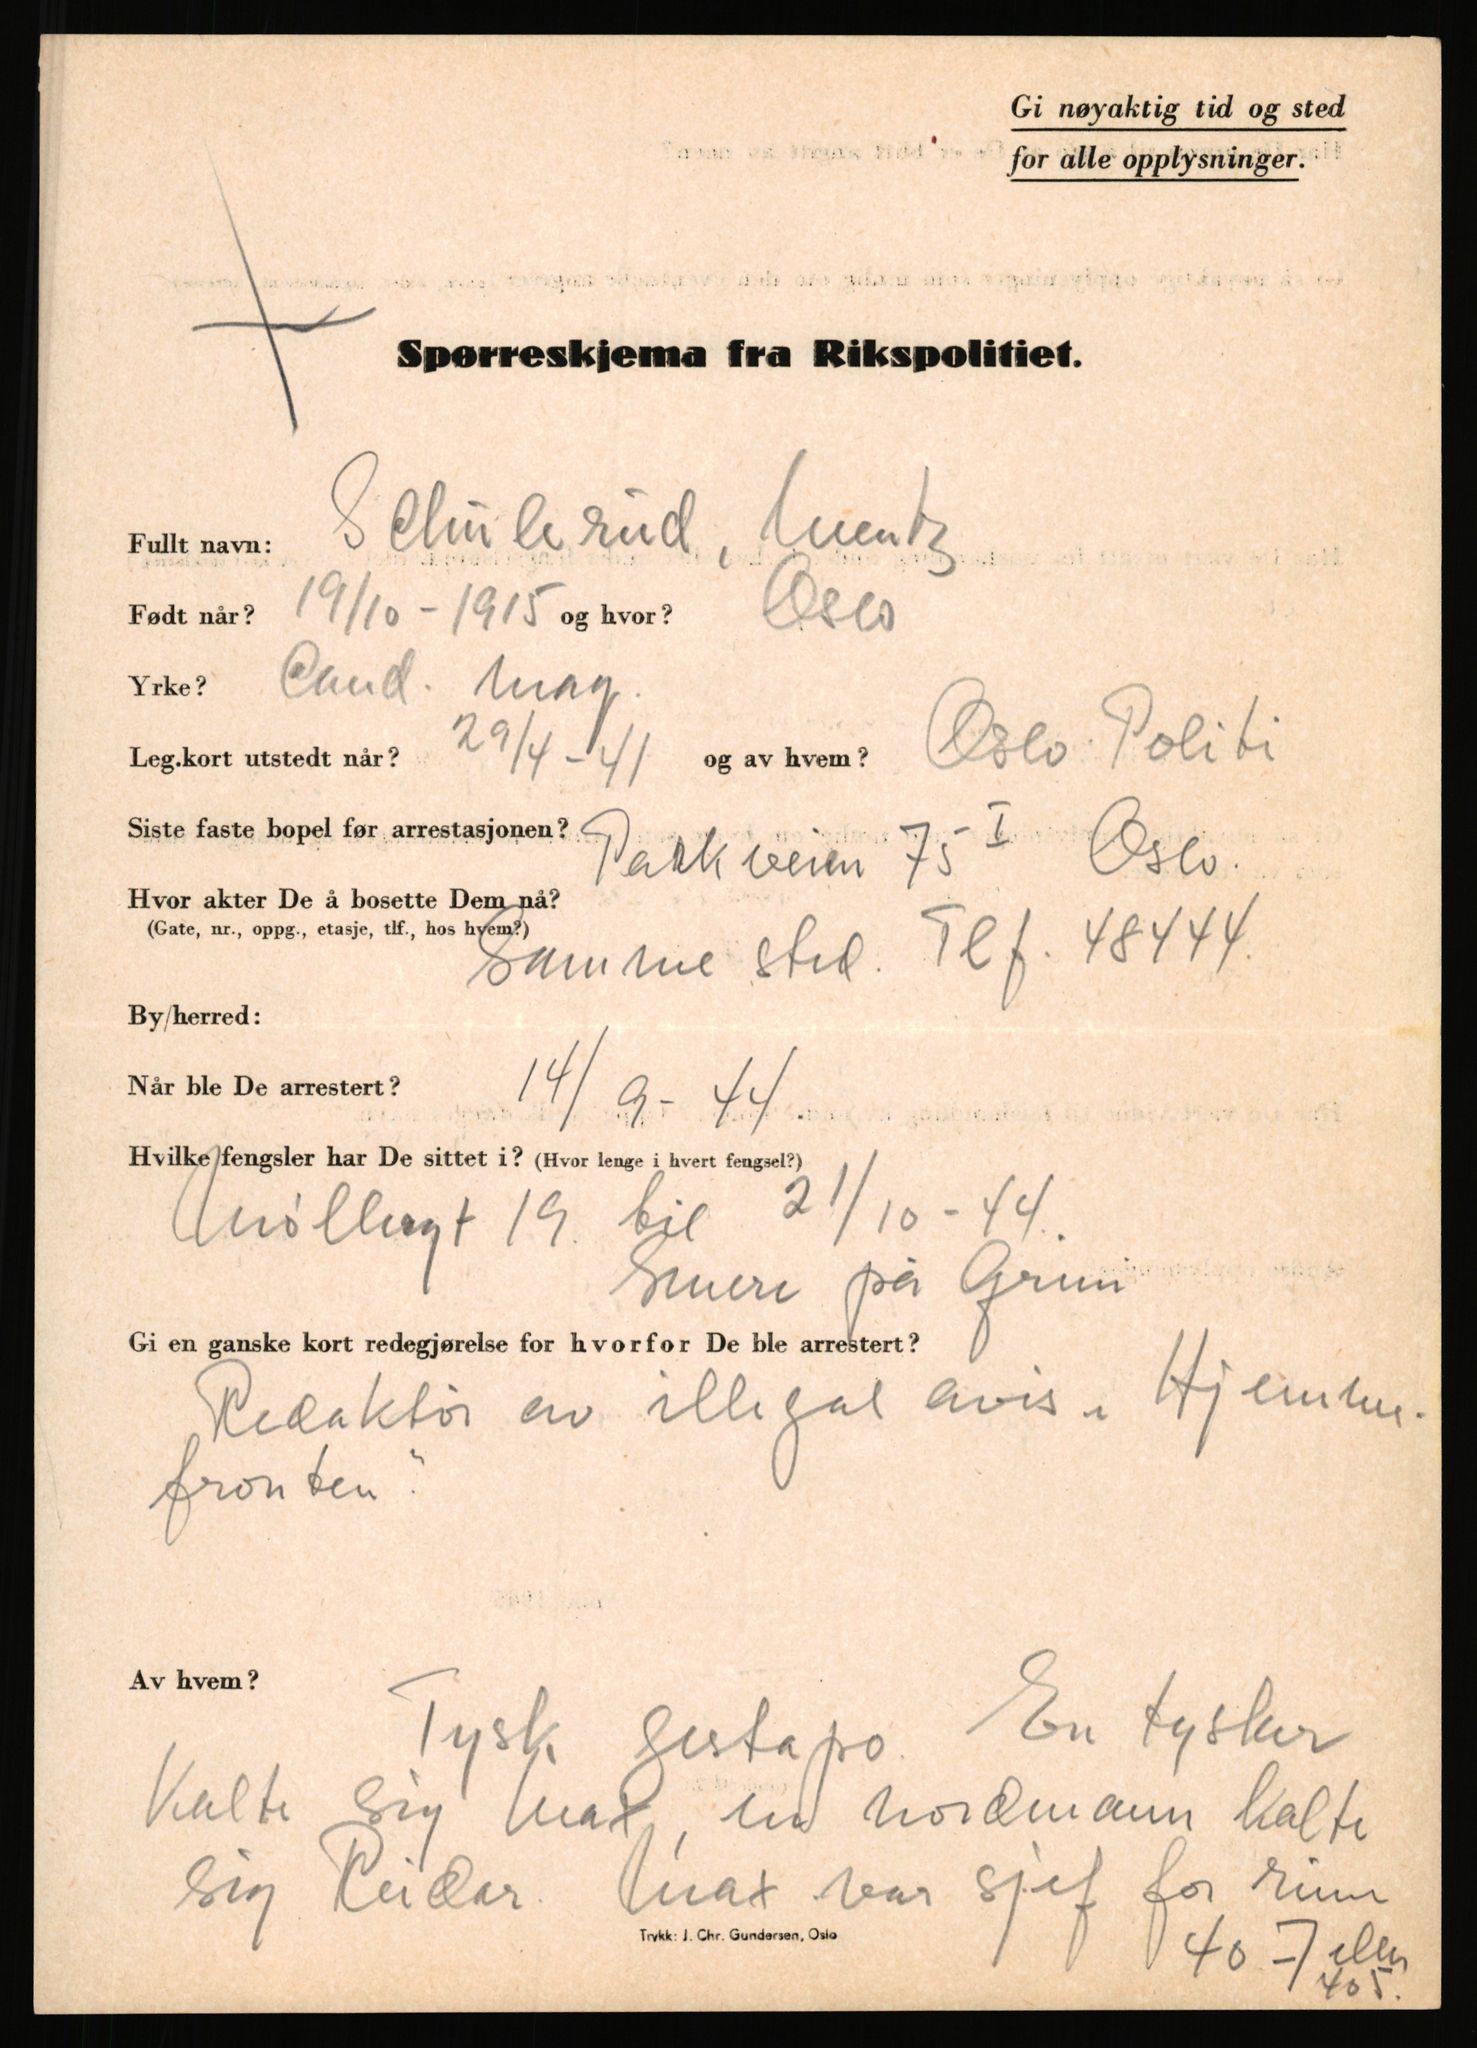 Gi nøyaktig tid og sted
for alle opplysninger.
Spørreskjema fra Rikspolitiet.
Fullt navn: Schulerud, Mentz
Født når? 19/10 - 1915 og hvor? Oslo
Yrke? Cand. mag.
Leg.kort utstedt når? 29/4 - 41 og av hvem? Oslo Politi
Siste faste bopel før arrestasjonen? Parkveien 75 I Oslo.
Hvor akter De å bosette Dem nå?
(Gate, nr., oppg., etasje, tlf., hos hvem?) Samme sted. Tlf. 48444.
By/herred:
Når ble De arrestert? 14/9 - 44.
Hvilke fengsler har De sittet i? (Hvor lenge i hvert fengsel?)
Møllergt 19. til 21/10 - 44.
Senere på Grini
Gi en ganske kort redegjørelse for hvorfor De ble arrestert?
Redaktør av illegal avis „Hjemme-
fronten".
Av hvem? Tysk gestapo. En tysker
kalte sig Max, en nordmann kalte
sig Reidar. Max var sjef for rum
40-7 eller
405.
Trykk: J. Chr. Gundersen, Oslo